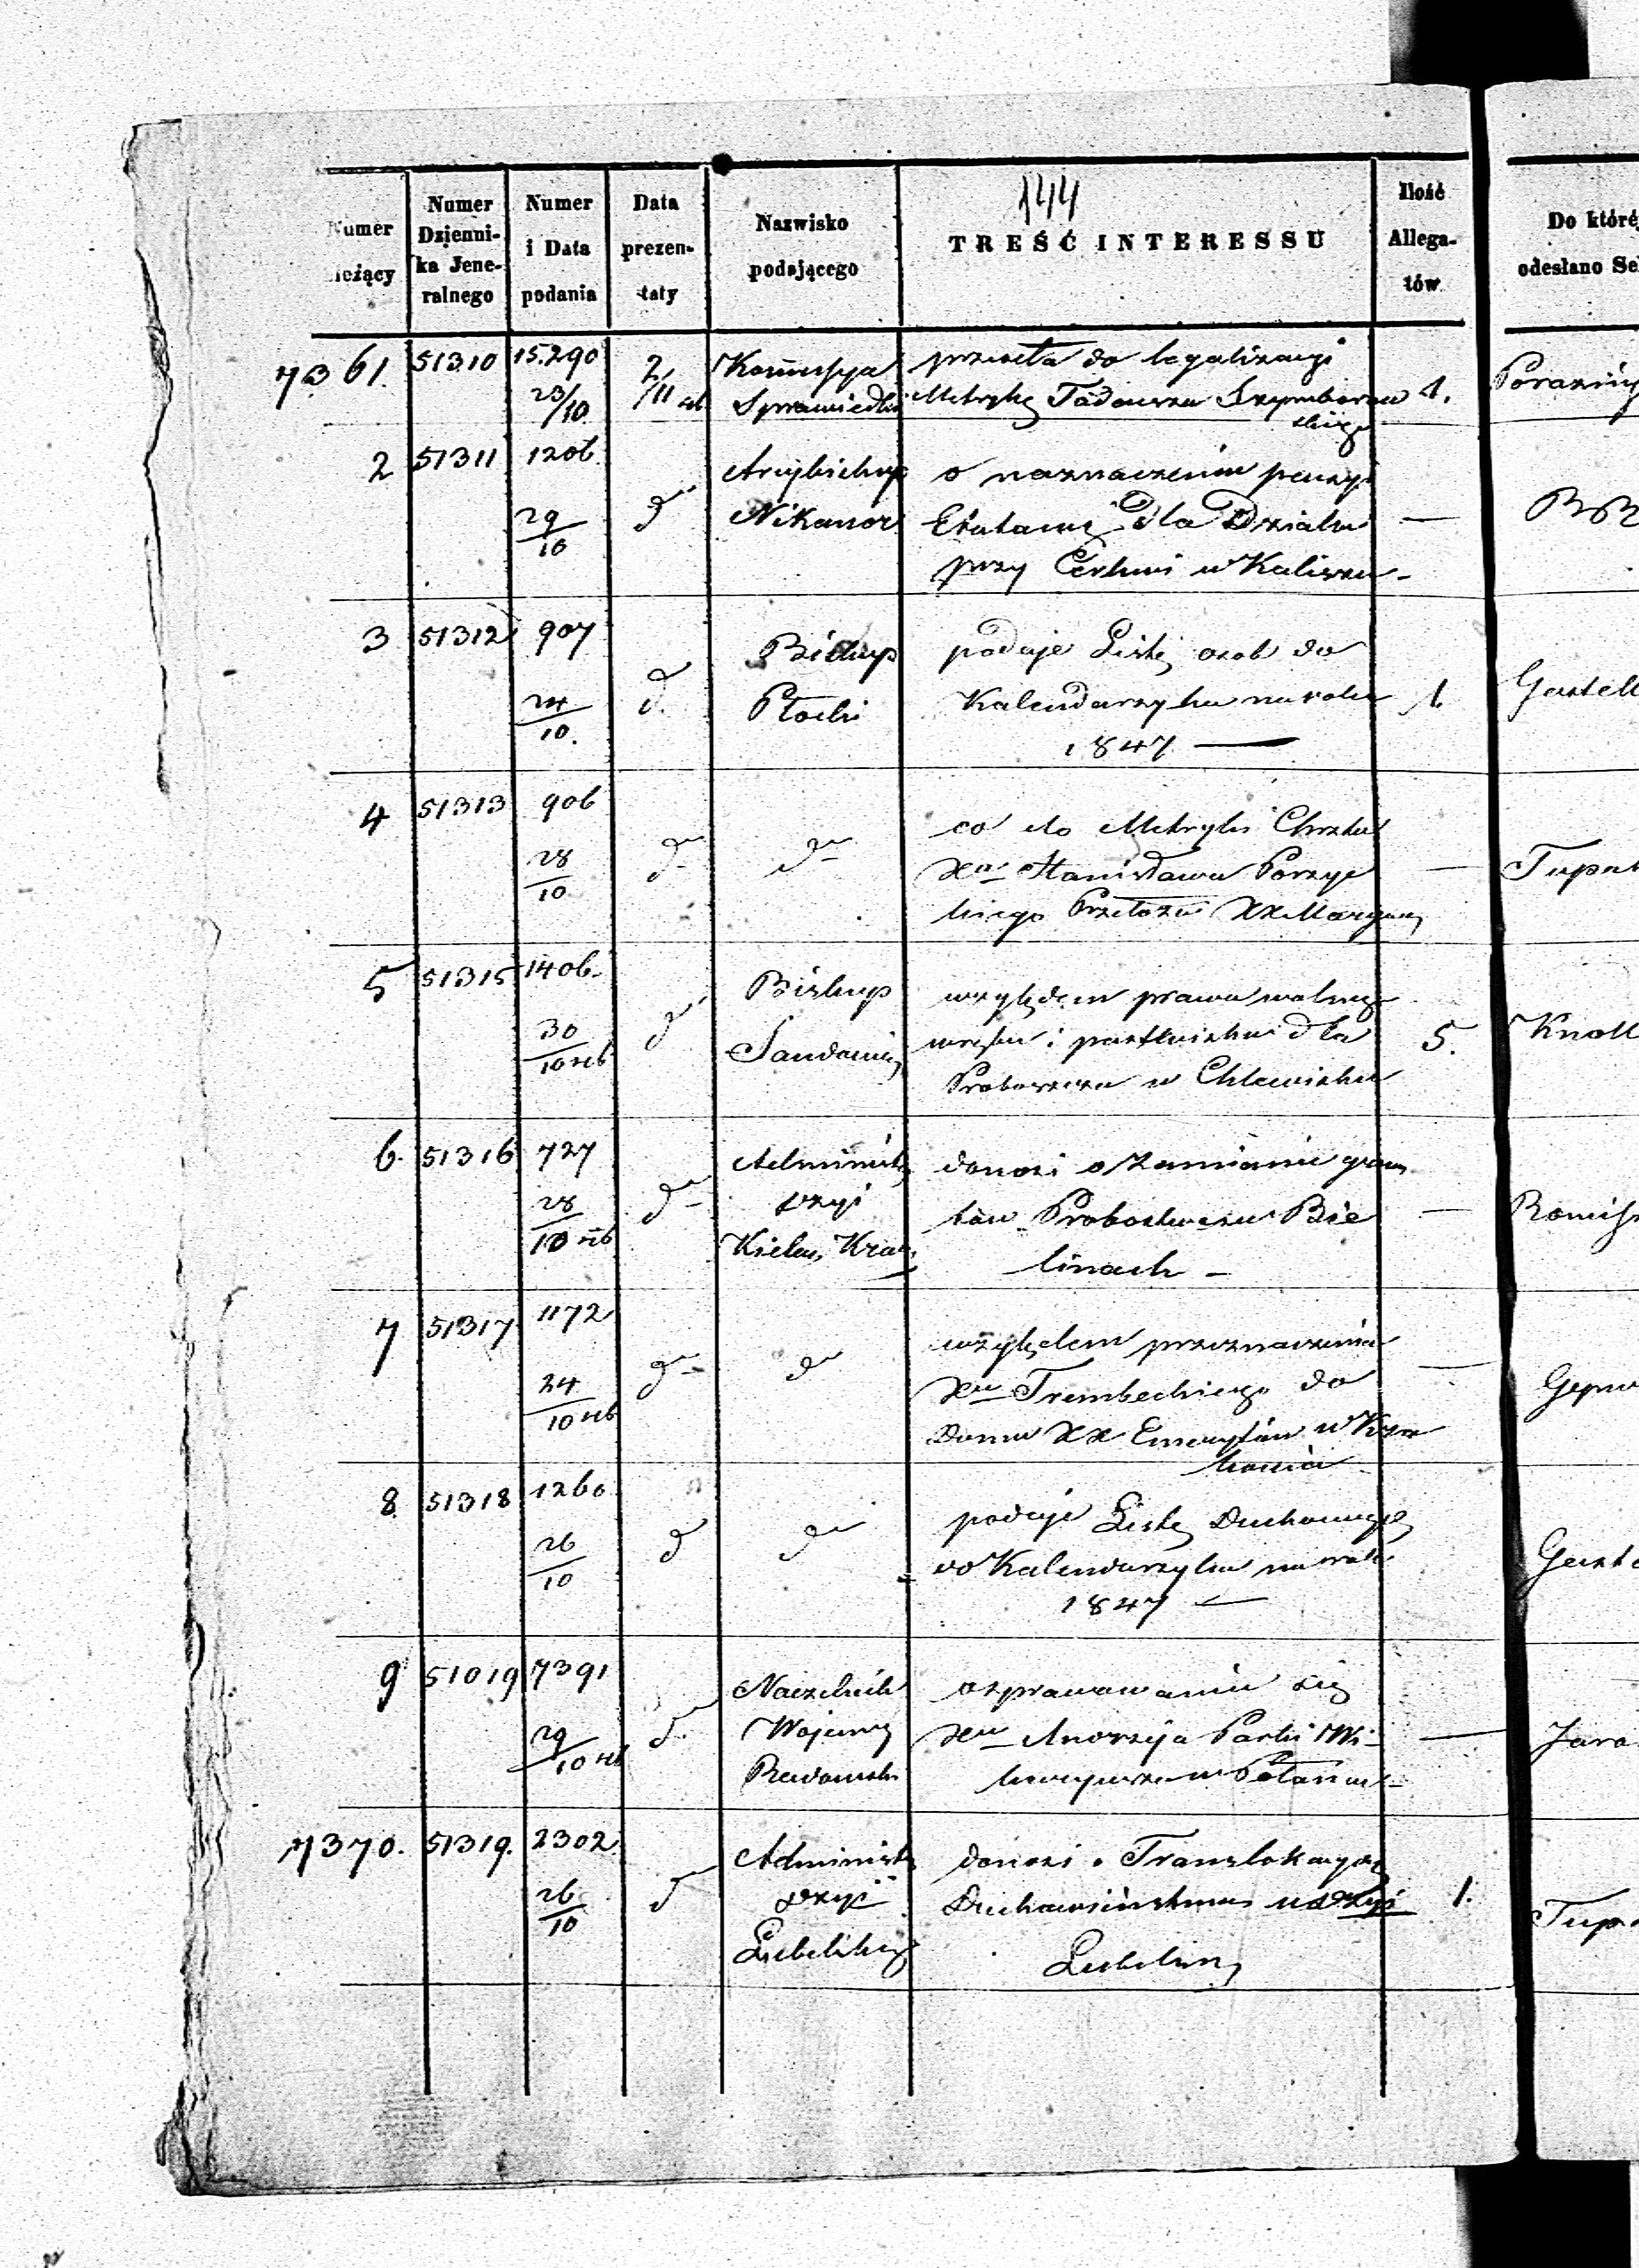 144
Numer
ieżący
Numer
Dzienni-
ka Jene-
ralnego
Numer
i Data
podania
Data
prezen-
taty
Nazwisko
podającego
TREŚĆ INTERESSU
Ilość
Allega-
tów
Do któréj
odesłano Se
7361. 51310 15.290 23/10 2/11 rb
Kommissya
Sprawiedliw
przesyła do legalizacyi
Metrykę Tadeusza Szymborow
skiego
1.
2 51311 1206 29/10 do
Arcybiskup
Nikanor
o naznaczeniu pensyi
Etatowej dla Dziaka
przy Cerkwi w Kaliszu -
—
3 51312 907 24/10. do
Biskup
Płocki
podaje Listę osob do
Kalendarzyka na rok
1847 —
1
4 51313 906 28/10 do do
co do Metryki Chrztu
Xa Stanisława Porzyc
kiego Przełożo XX Maryan
—
5 51315 1406. 30/10 rb do
Biskup
Sandomi
względem prawa wolnego
wrębu i pastwiska dla
Proboszcza w Chlewiska
5.
Knoll
6. 51316 727 28/10 rb do
Administ
Dyi
Kielec. Krak
donosi o zamianie grun
tów Probostwa w Bie
linach -
—
7 51317 1172 24/10 rb do do
względem przeznaczenia
Xa Trembeckiego do
Domu XX Emerytów w Kra
kowie
—
8 51318 1260 26/10 do do
podaje Listę Duchownych
do Kalendarzyka na rok
1847 —
9 51019 7391 29/10 rb do
Naczelnik
Wojenny
Radomsk
o sprawowaniu się
Xa Andrzeja Wi-
karyusza w
—
7370. 51319. 2302 26/10 do
Administ
Dyi
Lubelskiej
donosi o Translokacyi
Duchowieństwa w Dyi
Lubelski
1.